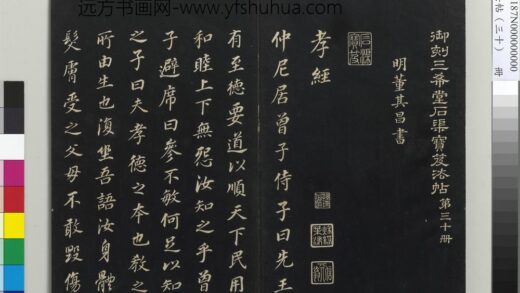 远方书画网-www.yfshuhua.com
御刻三希堂石渠寶笈法帖第三十册
明董其昌書
孝經
仲尼居曾子侍子曰先王
有至德要道以順天下民用
和睦上下無怨汝知之乎曾
子避席曰參不敏何足以知
之子曰夫孝德之本也教之
所由生也復坐吾語汝身體
髮膚受之父母不敢毀傷
帖(三十) 册
187N000000000